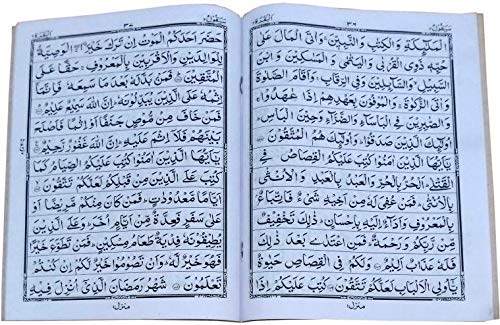 سَيَقُوْلُ ٢ ٣٦ الْبَقَرَة ٢
الْمَلٰٓئِكَةِ وَالْكِتٰبِ وَالنَّبِيّٖنَ ۚ وَاٰتَى الْمَالَ عَلٰى
حُبِّهٖ ذَوِى الْقُرْبٰى وَالْيَتٰمٰى وَالْمَسٰكِيْنَ وَابْنَ
السَّبِيْلِ ۙ وَالسَّآئِلِيْنَ وَفِى الرِّقَابِ ۚ وَاَقَامَ الصَّلٰوةَ
وَاٰتَى الزَّكٰوةَ ۚ وَالْمُوْفُوْنَ بِعَهْدِهِمْ اِذَا عٰهَدُوْا ۚ
وَالصّٰبِرِيْنَ فِى الْبَاْسَآءِ وَالضَّرَّآءِ وَحِيْنَ الْبَاْسِ ؕ
اُولٰٓئِكَ الَّذِيْنَ صَدَقُوْا ؕ وَاُولٰٓئِكَ هُمُ الْمُتَّقُوْنَ
يٰٓاَيُّهَا الَّذِيْنَ اٰمَنُوْا كُتِبَ عَلَيْكُمُ الْقِصَاصُ فِى
الْقَتْلٰى ؕ اَلْحُرُّ بِالْحُرِّ وَالْعَبْدُ بِالْعَبْدِ وَالْاُنْثٰى
بِالْاُنْثٰى ؕ فَمَنْ عُفِىَ لَهٗ مِنْ اَخِيْهِ شَىْءٌ فَاتِّبَاعٌۢ
بِالْمَعْرُوْفِ وَاَدَآءٌ اِلَيْهِ بِاِحْسَانٍ ؕ ذٰلِكَ تَخْفِيْفٌ
مِّنْ رَّبِّكُمْ وَرَحْمَةٌ ؕ فَمَنِ اعْتَدٰى بَعْدَ ذٰلِكَ
فَلَهٗ عَذَابٌ اَلِيْمٌ وَلَكُمْ فِى الْقِصَاصِ حَيٰوةٌ
يّٰٓاُولِى الْاَلْبَابِ لَعَلَّكُمْ تَتَّقُوْنَ كُتِبَ عَلَيْكُمْ اِذَا
منزل ١
سَيَقُوْلُ ٢ ٣٧ الْبَقَرَة ٢
حَضَرَ اَحَدَكُمُ الْمَوْتُ اِنْ تَرَكَ خَيْرَا ۖ ۨ الْوَصِيَّةُ
لِلْوَالِدَيْنِ وَالْاَقْرَبِيْنَ بِالْمَعْرُوْفِ ۚ حَقًّا عَلَى
الْمُتَّقِيْنَ فَمَنْۢ بَدَّلَهٗ بَعْدَ مَا سَمِعَهٗ فَاِنَّمَآ
اِثْمُهٗ عَلَى الَّذِيْنَ يُبَدِّلُوْنَهٗ ؕ اِنَّ اللّٰهَ سَمِيْعٌ عَلِيْمٌ
فَمَنْ خَافَ مِنْ مُّوْصٍ جَنَفًا اَوْ اِثْمًا فَاَصْلَحَ
بَيْنَهُمْ فَلَآ اِثْمَ عَلَيْهِ ؕ اِنَّ اللّٰهَ غَفُوْرٌ رَّحِيْمٌ
يٰٓاَيُّهَا الَّذِيْنَ اٰمَنُوْا كُتِبَ عَلَيْكُمُ الصِّيَامُ كَمَا
كُتِبَ عَلَى الَّذِيْنَ مِنْ قَبْلِكُمْ لَعَلَّكُمْ تَتَّقُوْنَ
اَيَّامًا مَّعْدُوْدٰتٍ ؕ فَمَنْ كَانَ مِنْكُمْ مَّرِيْضًا اَوْ
عَلٰى سَفَرٍ فَعِدَّةٌ مِّنْ اَيَّامٍ اُخَرَ ؕ وَعَلَى الَّذِيْنَ
يُطِيْقُوْنَهٗ فِدْيَةٌ طَعَامُ مِسْكِيْنٍ ؕ فَمَنْ تَطَوَّعَ خَيْرًا
فَهُوَ خَيْرٌ لَّهٗ ؕ وَاَنْ تَصُوْمُوْا خَيْرٌ لَّكُمْ اِنْ كُنْتُمْ
تَعْلَمُوْنَ شَهْرُ رَمَضَانَ الَّذِىْٓ اُنْزِلَ فِيْهِ
منزل ١